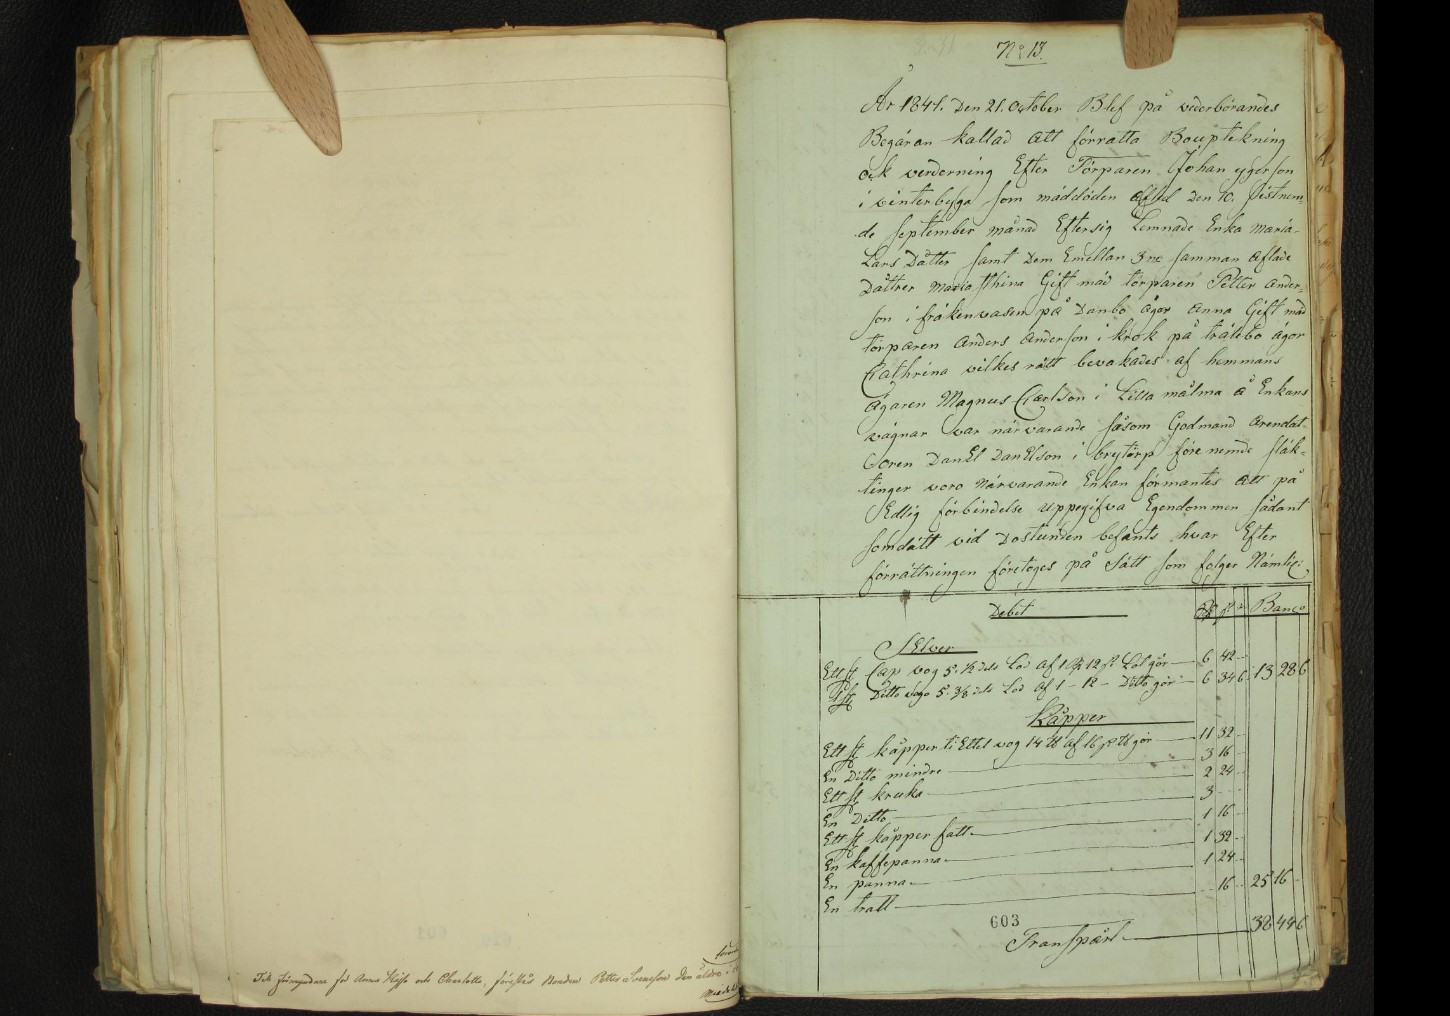 Till förmyndare för Anna Kajsa och Charlotta, föreslås Bonden Petter Svensson den äldre i
No 13.
År 1841. Den 21. October Blef på vederbörandes
Begäran kallad att förrätta Bouptekning
ock verderning Efter Torparen Johan
i vinterbyga som mäddöden afled den 10. sistnem-
de September månad Eftersig Lemnade Enka Maria
Lars Dåtter samt Dem Emellan 3ne samman aflade
Dättrer Maria Sthina Gift mäd torparen Petter Ander-
son i fräkenvasen på Danbo ägor Anna Gift mäd
torparen Anders Anderson i krok på trätebo ägor
Cathrina vilkes rätt bevakades af hemmans
ägaren Magnus Carlson i Lilla mälma å Enkans
vägnar var närvarande såsom Godmand arendat-
oren Daniel Danielson i brytorp före nemde släk-
tinger voro Närvarande Enkan förmantes att på
Edlig förbindelse uppegifva Egendommen sådant
somdätt vid Dostunden befants hvar Efter
förrättningen företoges på sätt som folger Nämlig:
Debet Banco
Selver
Ett st Cap vog 5. 1/2 dels Lod af 1 12 Lod gör 6 42
1 st Ditto vogo 5. 3/8 dels Lod af 1 - 12 - Ditto gör 6 34 6 13 28 6
Kåpper
Ett st kåpper ti Ettel vog 14 af 16 gör 11 32
En Ditto mindre 3 16
Ett st kruka 2 24
En Ditto 3
Ett st kåpper fatt 1 16
En kaffepanna 1 32
En panna 1 24
En tratt 16 25 16
603
Transpårt 38 44 6